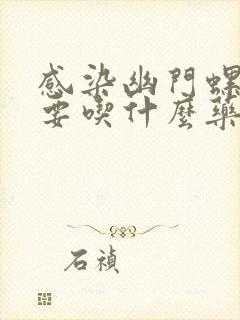 感染幽門螺
要喫什麼藥
石禎